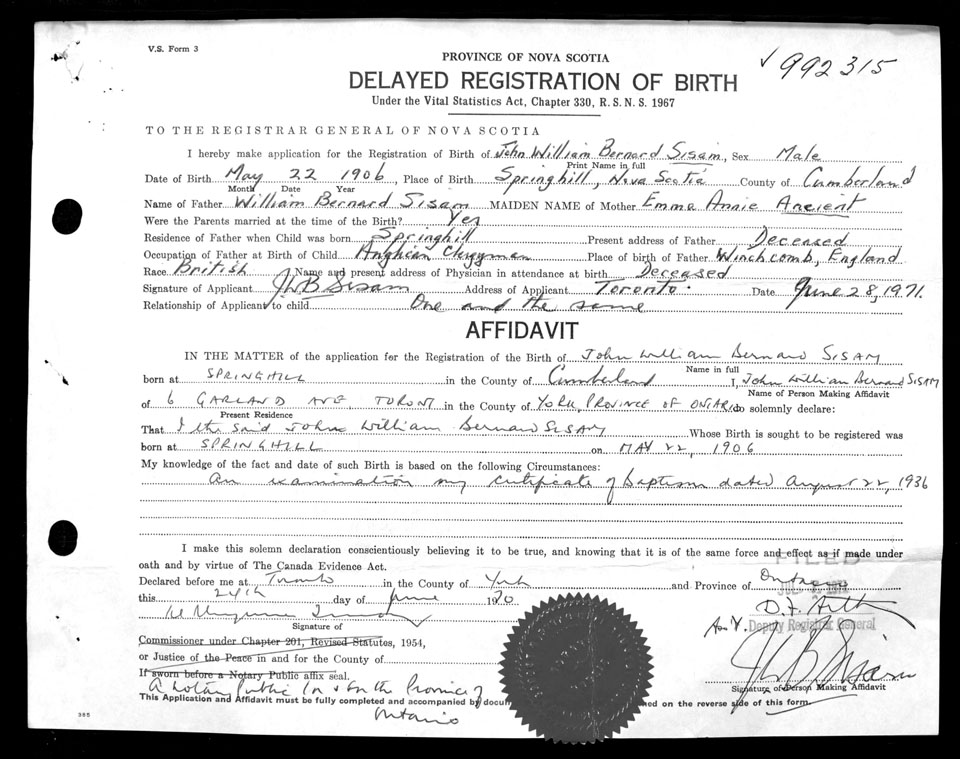 V.S. Form 3
PROVINCE OF NOVA SCOTIA
√992315
DELAYED REGISTRATION OF BIRTH
Under the Vital Statistics Act, Chapter 330, R. S. N. S. 1967
TO THE REGISTRAR GENERAL OF NOVA SCOTIA
I hereby make application for the Registration of Birth of John William Bernard Sisam, Sex Male
Print Name in full
Date of Birth May 22 1906, Place of Birth Springhill, Nova Scotia County of Cumberland
Month Date Year
Name of Father William Bernard Sisam MAIDEN NAME of Mother Emma Annie Ancient
Were the Parents married at the time of the Birth? Yes
Residence of Father when Child was born Springhill Present address of Father Deceased
Occupation of Father at Birth of Child Anglican Clergyman Place of birth of Father Winchcomb, England
Race British Name and present address of Physician in attendance at birth Deceased
Signature of Applicant JWB Sisam Address of Applicant Toronto. Date June 28, 1971.
Relationship of Applicant to child One and the same
AFFIDAVIT
IN THE MATTER of the application for the Registration of the Birth of John William Bernard SISAM
Name in full
born at SPRINGHILL in the County of Cumberland I, John William Bernard SISAM
Name of Person Making Affidavit
of 6 GARLAND AVE TORONT in the County of YORK, PROVINCE OF ONTARIO do solemnly declare:
Present Residence
That I the said John William Bernard SISAM Whose Birth is sought to be registered was
born at SPRINGHILL on MAY 22, 1906
My knowledge of the fact and date of such Birth is based on the following Circumstances:
An examination my certificate of Baptism dated August 22, 1936
I make this solemn declaration conscientiously believing it to be true, and knowing that it is of the same force and effect as if made under
oath and by virtue of The Canada Evidence Act.
FILED
Declared before me at Toronto in the County of York and Province of Ontario
this 24th day of June 1970
Signature of
Deputy Registrar General
Commissioner under Chapter 201, Revised Statutes, 1954,
or Justice of the Peace in and for the County of
JWB Sisam
If sworn before a Notary Public affix seal.
Signature of Person Making Affidavit
A Notary Public in & for the Province of
Ontario
This Application and Affidavit must be fully completed and accompanied by docum ned on the reverse side of this form.
385